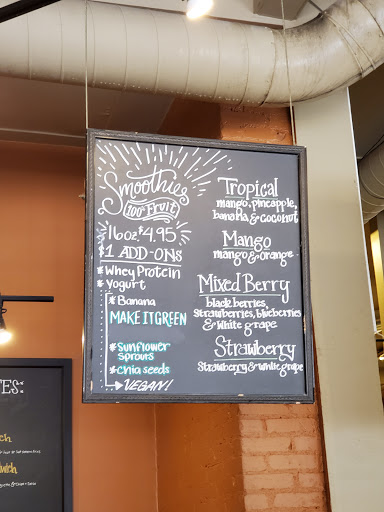 Smoothies
100% Fruit
16oz $4.95
$1 ADD-ONS
* Whey Protein
* Yogurt
* Banana
MAKE IT GREEN
* Sunflower
sprouts
* chia seeds
VEGAN!
Tropical
mango, pineapple,
banana & coconut
Mango
mango & orange
Mixed Berry
blackberries,
Strawberries, blueberries
& white grape
Strawberry
Strawberry & white grape